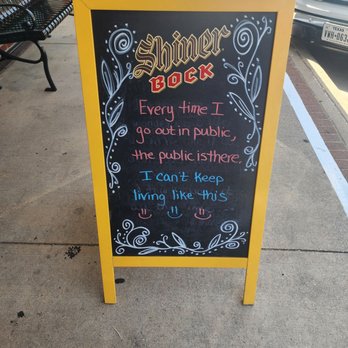 Shiner
BOCK
Every time I
go out in public,
the public is there.
I can't keep
living like this
TEXAS